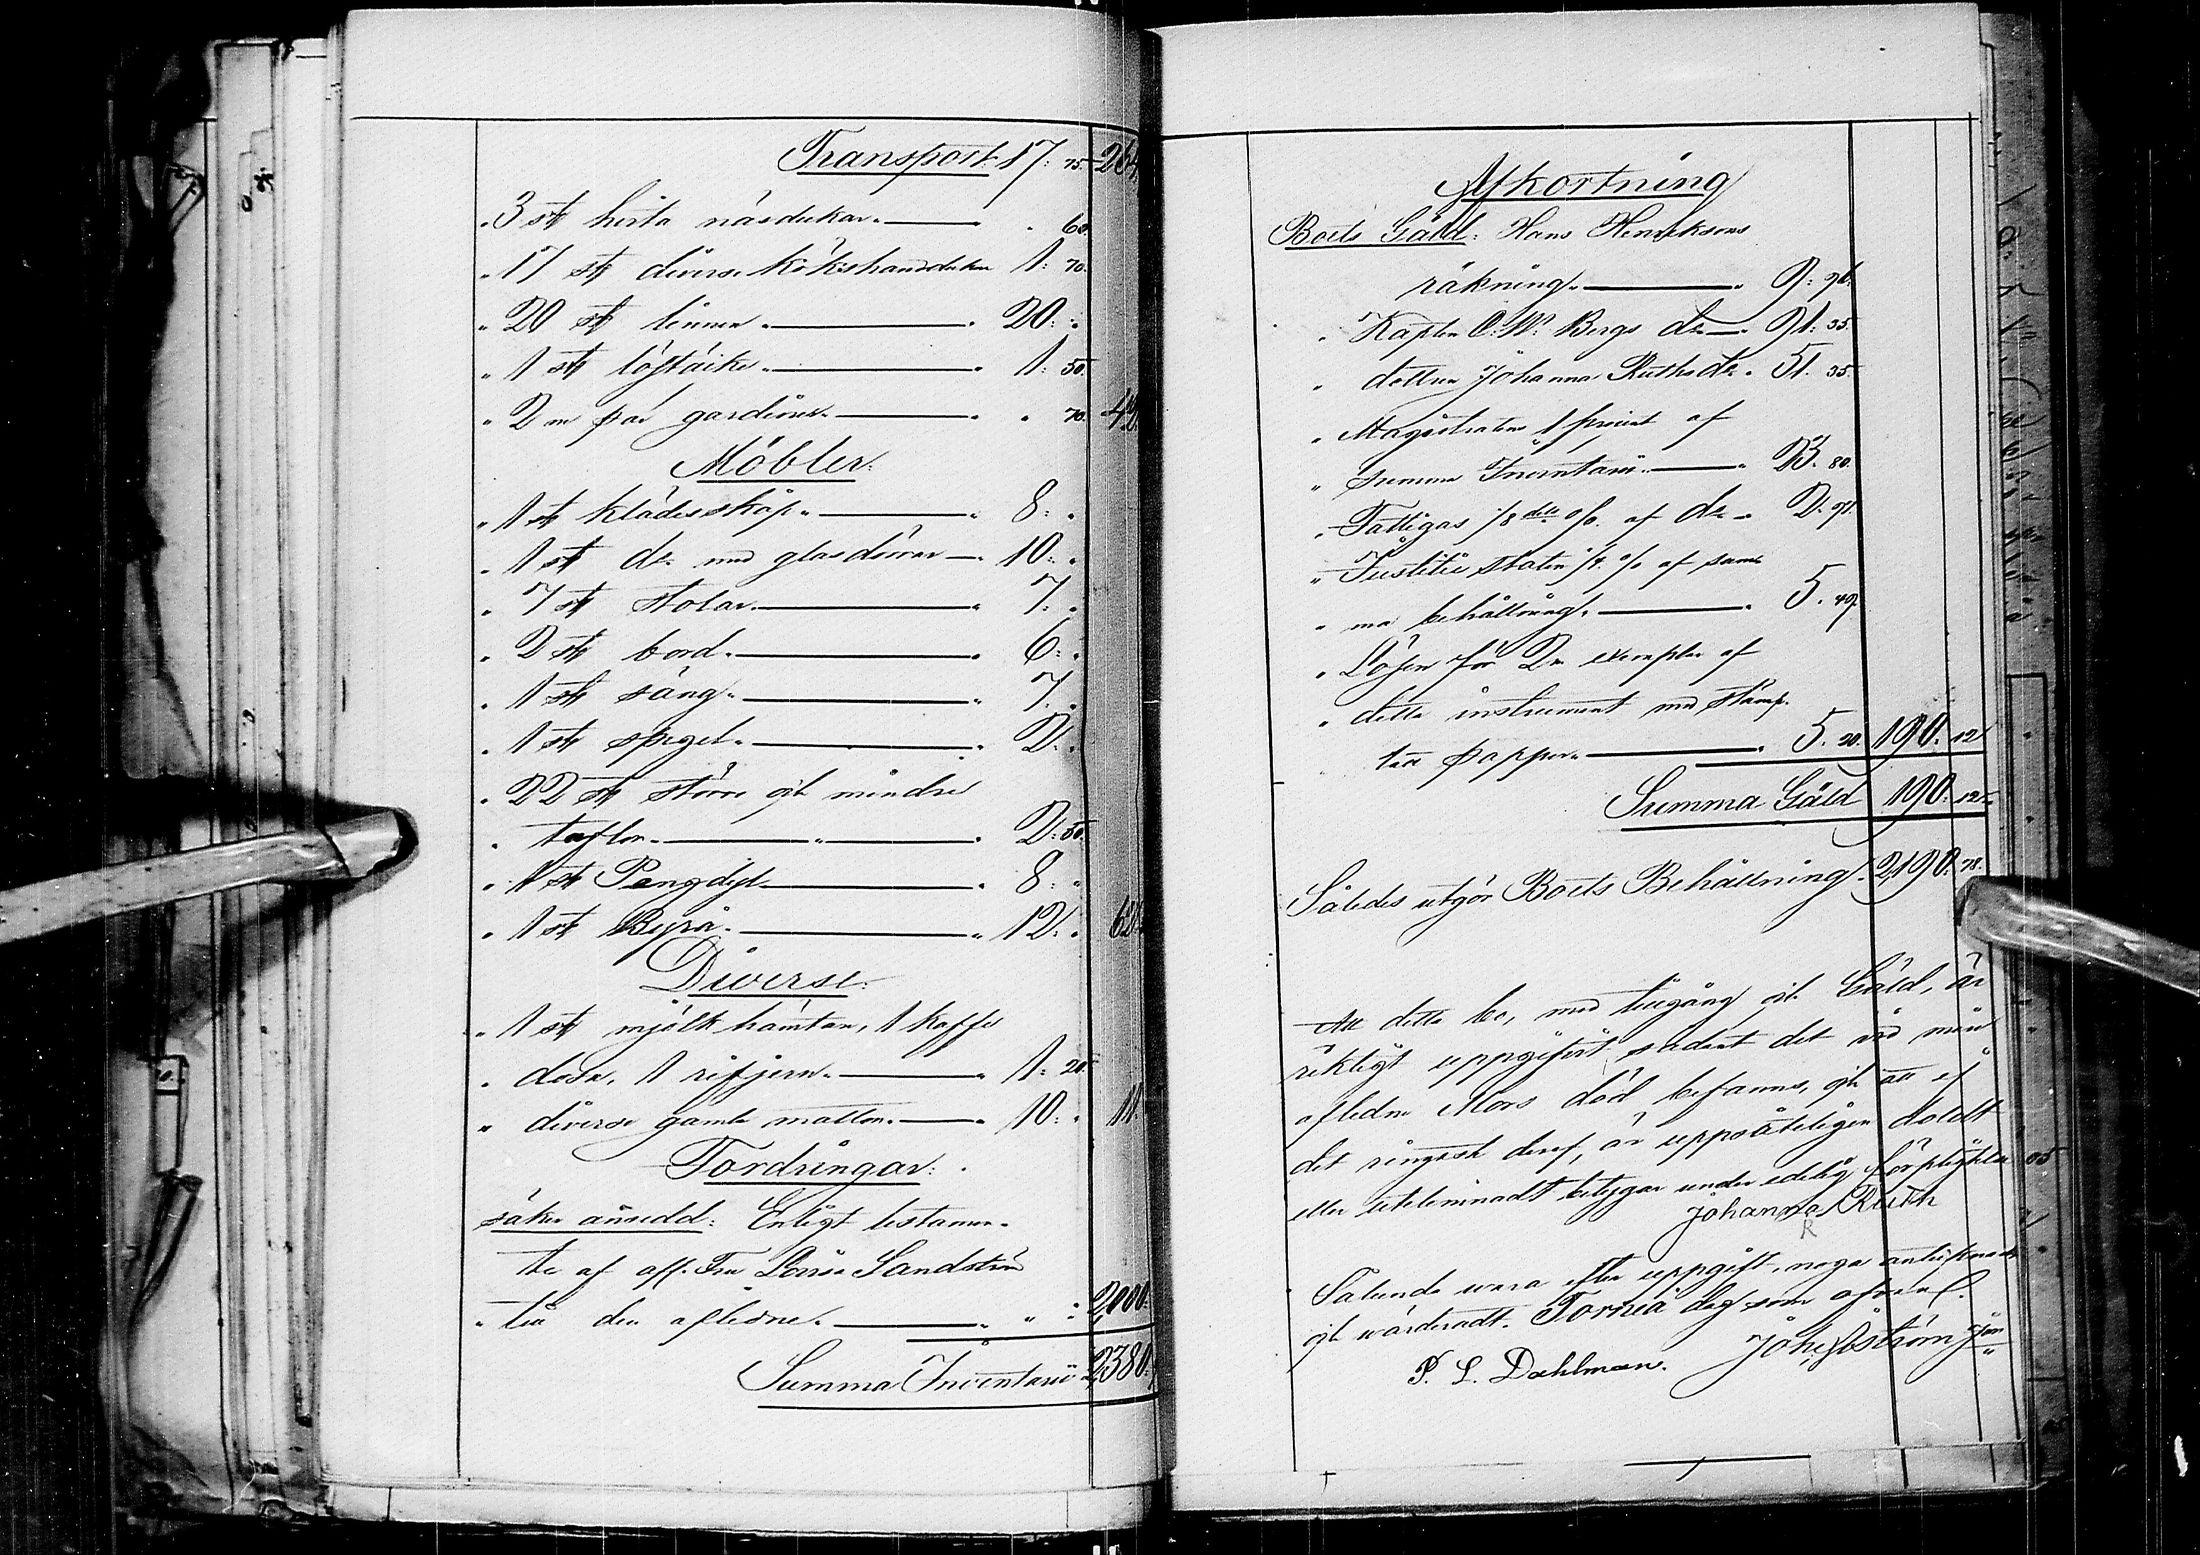 Transport 17: 75. 264
" 3 st hvita näsdukar " 60.
" 17 st diverse kökshanddukar 1: 70.
" 20 st linnen " 20: "
" 1 st löstäcke " 1: 50.
" 2 m par gardiner " " 70. 42
Möbler:
" 1 st klädesskåp " 8: "
" 1 st do med glasdörrar " 10: "
" 7 st stolar " 7: "
" 2 st bord " 6: "
" 1 st säng " 7: "
" 1 st spegel " 2: "
" 22 st större och mindre
" taflor " 2: 50.
" 1 st 8: "
" 1 st Byrå " 12: " 62
Diverse:
" 1 st mjölk hämtare, 1 kaffe
" dosa, 1 rifjern " 1: 20.
" diverse gamla mattor " 10: " 11
Fordringar:
säker ansedd: Enligt testamen-
te af afl. Fru Lovisa Sandström
" till den aflidne " " " 2,000:
Summa Inventarii 2,380:
Afkortning
Boets Gäld: Hans Henriksons
räkning " 9: 96.
" Kapten C. W. Bergs do " 91: 35.
" dottren Johanna Ruths do " 51. 35.
" Magistraten 1 procent af
" summa Inventarii " 23. 80.
" Fattigas 1/8 dels o/o. af do " 2: 97.
" Justitie Staten 1/4. o/o af sam-
" ma behållning " 5. 49.
" Lösen för 2ne exemplar af
" detta instrument med stämp-
lat papper " 5. 20. 190. 12
Summa Gäld 190: 12
Således utgör Boets Behållning 2,190: 78.
Att detta bo, med tillgång och Gäld, är
riktigt uppgifvit, sådant det vid min
aflidna Mors död befanns, och att ej
det ringaste deraf, är uppsåtligen doldt
eller utelemnadt betygar under edelig förpligtelse
Johanna Ruth
Sålunda vara efter uppgift, noga antecknadt
och värderadt. Torneå dag som ofvan.
P. L. Dahlman.